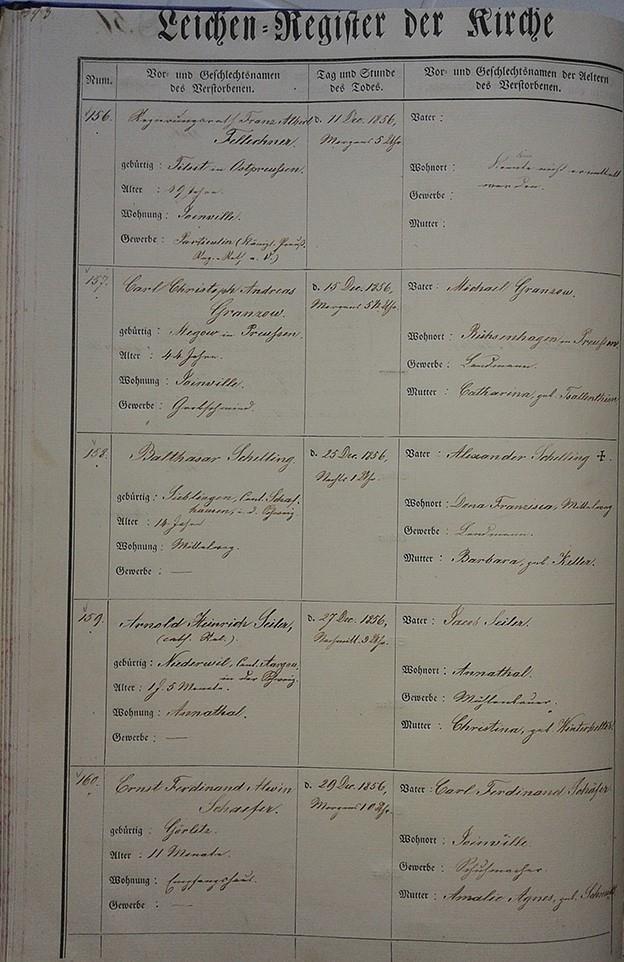 Leichen-Register der Kirche
Num.
Vor- und Geschlechtsnamen
des Verstorbenen.
Tag und Stunde
des Todes.
Vor- und Geschlechtsnamen der Aeltern
des Verstorbenen.
156.
Regierungsrath Franz Albert
Fellechner.
gebürtig : Tilsit in Ostpreussen.
Alter : Jahre.
Wohnung : Joinville.
Gewerbe : Particulier (Königl. Preuß.
d. 11 Dec. 1856,
Morgens 5 Uhr.
Vater :
Wohnort : Konnte nicht ermittelt
werden.
Gewerbe :
Mutter :
157.
Carl Christoph Andreas
Granzow.
gebürtig : Megow in Preussen.
Alter : 44 Jahre.
Wohnung : Joinville.
Gewerbe : Grobschmied.
d. 15 Dec. 1856,
Morgens Uhr.
Vater : Michael Granzow.
Wohnort : in Preussen
Gewerbe : Landmann.
Mutter : Catharina, geb.
158.
Balthasar Schelling.
gebürtig : Siblingen, Cant. Schaf-
hausen, i. d. Schweiz
Alter : 14 Jahre
Wohnung : Mittelweg.
Gewerbe : —
d. 25 Dec. 1856,
Nachts 1 Uhr.
Vater : Alexander Schelling ✝.
Wohnort : Dona Francisca, Mittelweg
Gewerbe : Landmann.
Mutter : Barbara, geb. Keller.
159.
Arnold Heinrich Seiler,
(cath. Rel.).
gebürtig : Niederwil, Cant. Aargau,
in der Schweiz.
Alter : 1 J. 5 Monate.
Wohnung : Annathal.
Gewerbe : —
d. 27 Dec. 1856,
Nachmitt. 3 Uhr.
Vater : Jacob Seiler.
Wohnort : Annathal.
Gewerbe : Mühlenbauer.
Mutter : Christina, geb.
160.
Ernst Ferdinand Alwin
Schaefer.
gebürtig : Görlitz.
Alter : 11 Monate.
Wohnung : Empfangshaus.
Gewerbe : —
d. 29 Dec. 1856,
Morgens 10 Uhr.
Vater : Carl Ferdinand Schäfer
Wohnort : Joinville.
Gewerbe : Schuhmacher
Mutter : Amalie Agnes, geb.